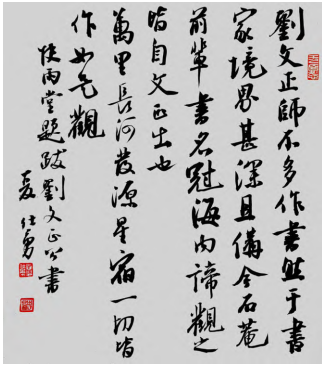 劉文正師不多作書然于書
家境界甚深且備今石菴
前輩書名冠海内諦觀之
皆自文正出也
萬里長河發源星宿一切皆
作如是觀
快雨堂題跋劉文正公書
夏仕勇